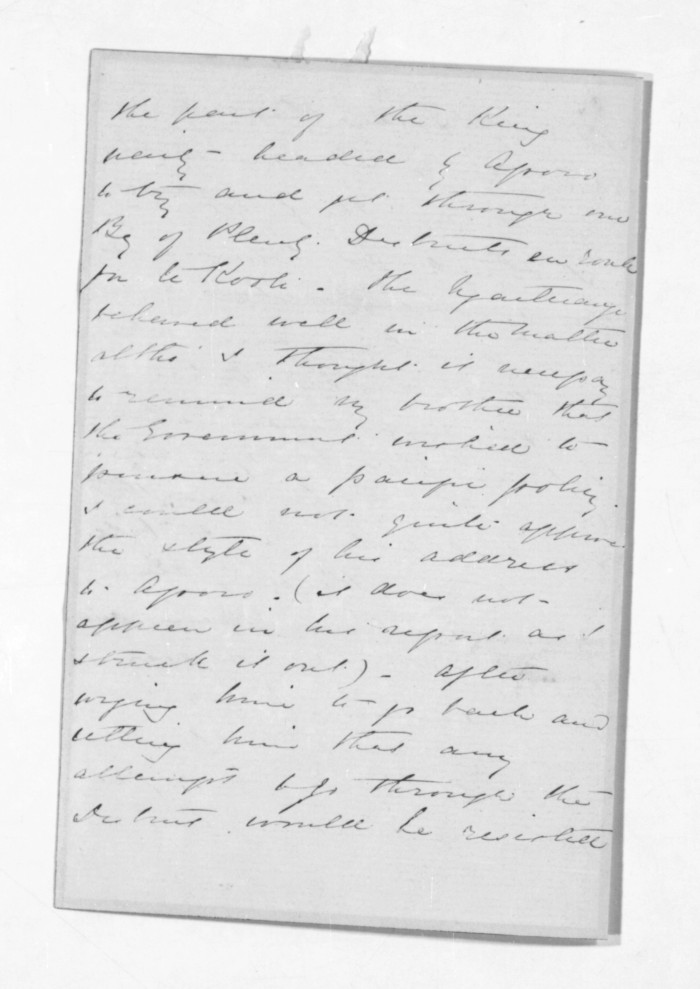 the part of the King
party - headed by Aporo
to try and get through our
Bay of Plenty Districts en route
for Te Kooti - the Ngaiterangi
behaved well in the matter
altho' I thought it necessary
to remind my brother that
the Government wished to
pursue a pacific policy.
I could not quite approve
the style of his address
to Aporo. (it does not
appear in his report as I
struck it out) - After
urging him to go back and
telling him that any
attempt to go through the
District would be resisted